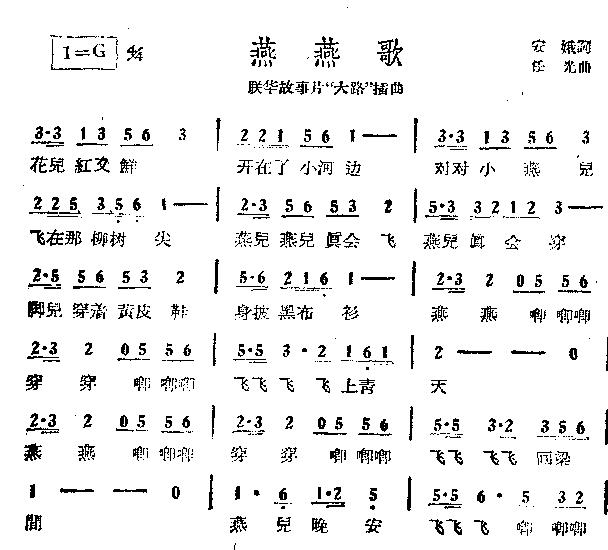 1=G 4/4
燕燕歌
安 娥詞
任 光曲
联华故事片“大路”插曲
3·3 1 3 5 6 3 | 2 2 1 5 6 1 — | 3·3 1 3 5 6 3
花兒 紅又 鮮 开在了 小河 边 对对 小 燕 兒
2 2 5 3 5 6 1 — | 2·3 5 6 5 3 2 | 5·3 3 2 1 2 3 —
飞在那 柳树 尖 燕兒 燕兒 眞会 飞 燕兒 眞 会 穿
2·5 5 6 5 3 2 | 5·6 2 1 6 1 — | 2·3 2 0 5 5 6
脚兒 穿着 黃皮 鞋 身披 黑布 衫 燕 燕 唧 唧唧
2·3 2 0 5 5 6 | 5·5 3 · 2 1 6 1 | 2 — — 0
穿 穿 唧 唧唧 飞飞 飞 飞 上靑 天
2·3 2 0 5 5 6 | 2·3 2 0 5 5 6 | 5·5 3·2 3 5 5
燕 燕 唧 唧唧 穿 穿 唧 唧唧 飞飞 飞飞 回梁
1 — — 0 | 1 · 6 1·2 5 | 5·5 6 · 5 3 2
間 燕 兒 晚 安 飞飞 飞 唧 唧唧